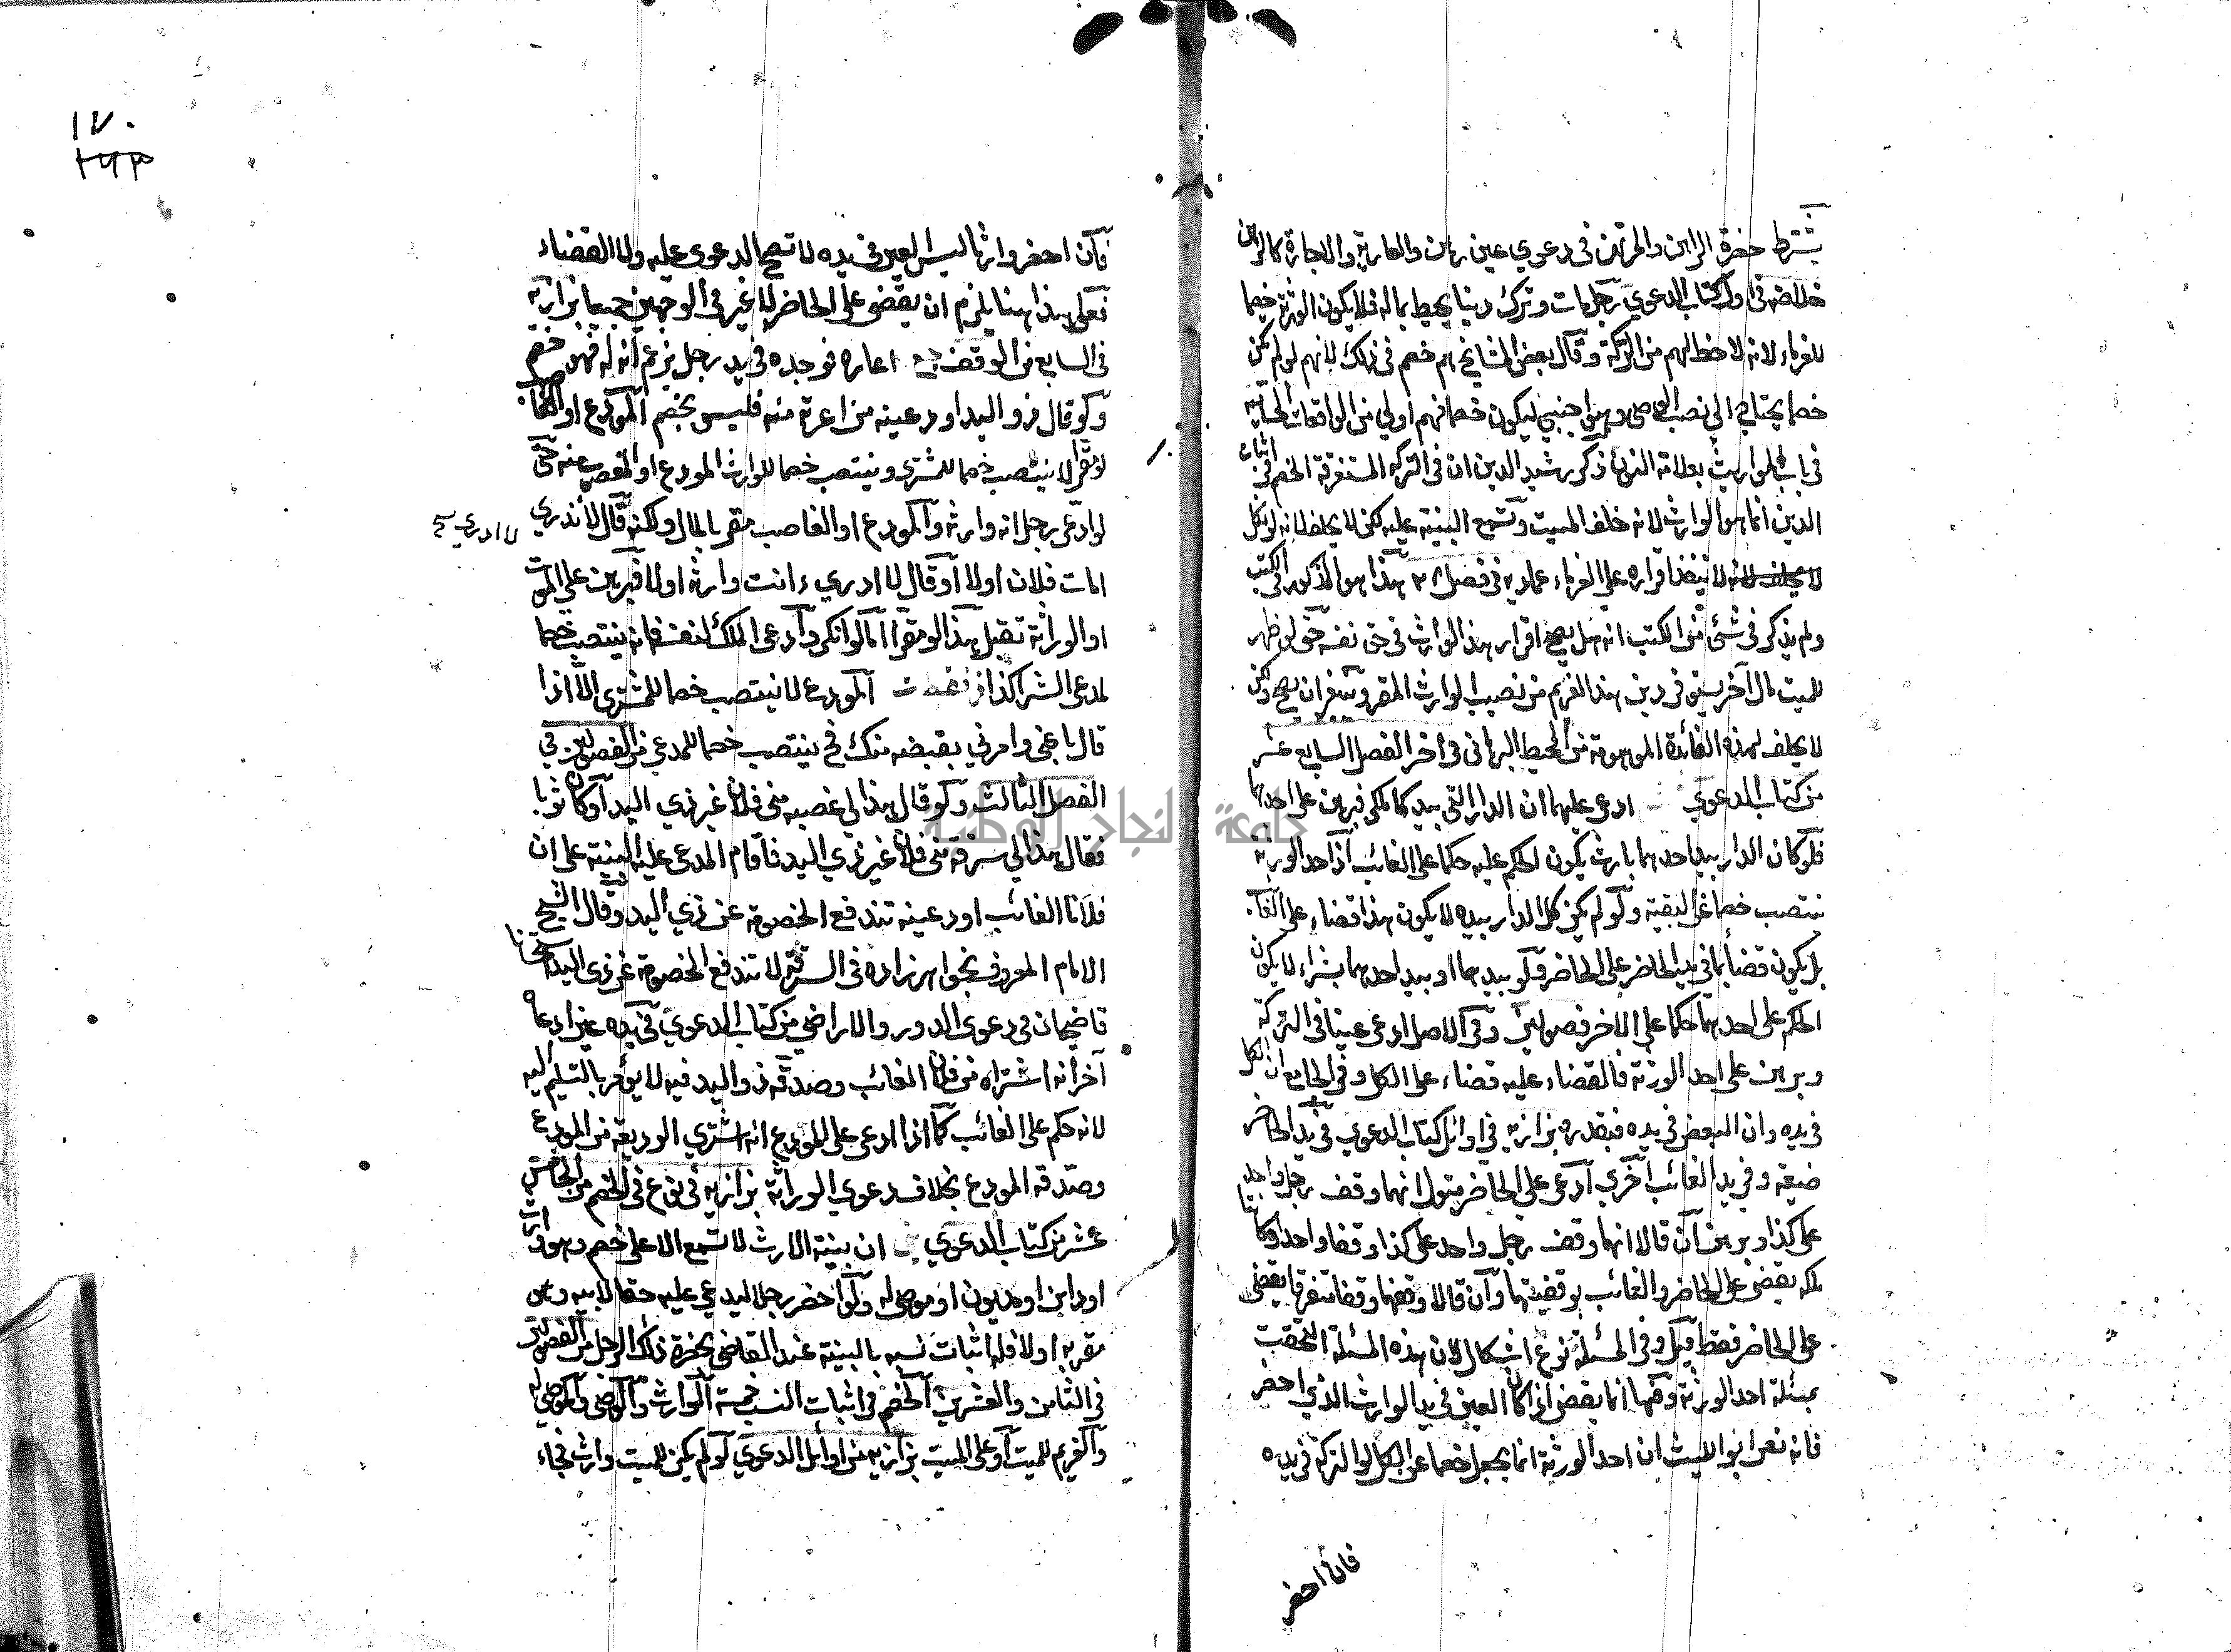 يشترط حضرة الراهن والمرتهن في دعوى عين رهن والعارية والاجارة كالرهن
خلاصه في اول كتاب الدعوي رجل مات وترك دينا يحيط بماله فلا يكون الورثة خصما
للغرماء لانه لا حظ لهم من التركة وقال بعض المشايخ هم خصم في ذلك لانهم لو لم يكن
خصما يحتاج الي نصب الوصي وهو اجنبي ليكون خصما فهم اولي من الواقعات الحساميه
في باب المواريث بعلامة النون ذكر رشيد الدين ان في التركه المستغرقة الخصم في اثبات
الدين انما هو الوارث لانه خلف الميت وتسمع البينة عليه لكن لا يحلف لانه لو نكل
لا ينفذ اقراره علي الغرماء عماديه في فصل ٢٨ هذا هو المذكور في الكتب
ولم يذكر في شئ من الكتب انه هل يصح اقرار هذا الوارث في حق نفسه حتى لو ظهر
للميت مال آخر يستوفي دين هذا الغريم من نصيب الوارث المقر وينبغي ان يصح ولكن
لا يحلف لهذه الفائدة الموهومة من المحيط البرهاني في اخر الفصل السابع عشر
من كتاب الدعوي ادعى عليهما ان الدار التي بيدكما ملكي فبرهن على احدهما
فلو كان الدار بيد احدهما بارث يكون الحكم عليه حكما على الغائب اذ احد الورثة
ينتصب خصما عن البقية ولو لم يكن كل الدار بيده لا يكون هذا قضاء على الغائب
بل يكون قضاء بما في يد الحاضر على الحاضر ولو بيدهما او بيد احدهما بشراء لا يكون
الحكم على احدهما حكما على الاخر فصولين وفي الاصل ادعى عينا في التركة
وبرهن على احد الورثة فالقضاء عليه قضاء على الكل وفي الجامع ان الكل
في يده وان البعض في يده فبقدره بزازيه في اوائل كتاب الدعوي في يد الحاضر
ضيعة وفي يد الغائب اخري ادعى علي الحاضر متول انهما وقف رجل واحد
على كذا وبرهن ان قالا انهما وقف رجل واحد على كذا وقفا واحدا وكانتا
ملكه يقضى على الحاضر والغائب بوقفيتهما وان قالا وقفهما وقفا متفرقا يقضى
على الحاضر فقط قيل وفي المسئلة نوع اشكال لان هذه المسئلة التحقت
بمسئلة احد الورثة وثمها انما يقضى اذا كان العين في يد الوارث الذي احضر
فانه نص ابو الليث ان احد الورثة انما يجعل خصما عن الكل لو التركة في يده
فان احضر
١٧٠
٢٦٣
فان احضر وارثا ليس العين في يده لا تصح الدعوى عليه ولا القضاء
فعلى هذا ههنا يلزم ان يقضى على الحاضر لا غير في الوجهين جميعا بزازيه
في السابع من الوقف اعاره فوجده في يد رجل يزعم انه له فهو خصم
ولو قال ذو اليد اودعينه من اعرته منه فليس بخصم المودع او الغاصب
لو مقرا لا ينتصب خصما للمشتري وينتصب خصما لوارث المودع او المغصوب منه حتى
لو ادعى رجل انه وارثه والمودع او الغاصب مقر بالمال ولكنه قال لا ندري
لا ادري صح
امات فلان اولا او قال لا ادري ءانت وارثه اولا فبرهن على الموت
او الوراثة تقبل هذا لو مقرا اما لو انكر وادعى الملك لنفسه فانه ينتصب خصما
لمدعى الشرا كذا المودع لا ينتصب خصما للمشتري الا اذا
قال باعني وامرني بقبضه منك فح ينتصب خصما للمدعي من الفصولين في
الفصل الثالث ولو قال هذا لي غصبه مني فلان غير ذي اليد او كان ثوبا
فقال هذا لي سرقه مني فلان غير ذي اليد فاقام المدعى عليه البينة على ان
فلانا الغائب اودعينه تندفع الخصومة عن ذي اليد وقال الشيخ
الامام المعروف بخواهر زاده في السرقة لا تندفع الخصومة عن ذي اليد استحسانا
قاضيخان في دعوى الدور والاراضي من كتاب الدعوي في يده عين ادعاه
آخر انه اشتراه من فلان الغائب وصدقه ذو اليد فيه لا يؤمر بالتسليم اليه
لانه حكم على الغائب كما اذا ادعى على المودع انه اشتري الوديعة من المودع
وصدقه المودع بخلاف دعوي الوراثة بزازيه في نوع في الخصم من الخامس
عشر من كتاب الدعوي ان بينة الارث لا تسمع الا على خصم وهو وارث
او داين او مديون او موصى له ولو احضر رجلا ليدعي عليه حقا لابيه وهو
مقر به اولا فله اثبات نسبه بالبينة عند القاضي بحضرة ذلك الرجل من الفصولين
في الثامن والعشرين الخصم في اثبات النسب خمسة الوارث والوصي والموصى له
والغريم للميت او على الميت بزازيه من اوائل الدعوي لو لم يكن للميت وارث فجاء
جامعة النجاح الوطنية